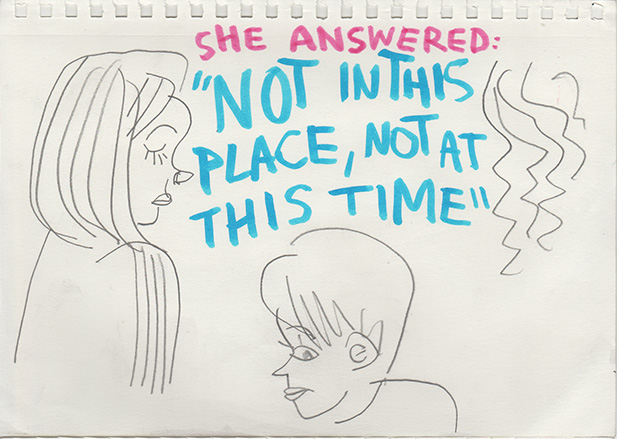 SHE ANSWERED:
"NOT IN THIS
PLACE, NOT AT
THIS TIME"